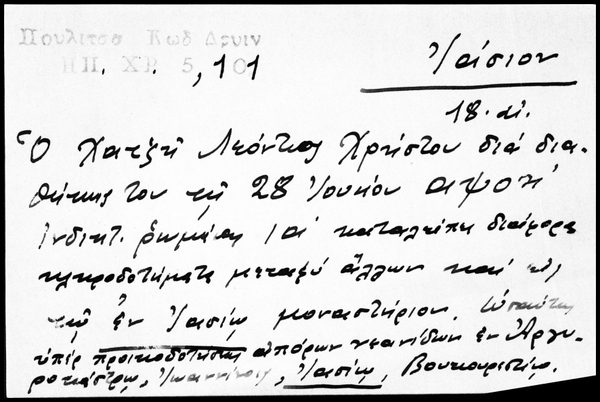 Πουλίτσα Κωδ Δρυιν
ΠΠ. ΧΡ 5, 101
Ἰάσιον
18. αἰ.
Ὁ Χατζῆ Λεόντιος Χρήστου διὰ δια-
θήκης του τῇ 28 Ἰουνίου αψο
ἰνδικτ. ῥωμαίων ια καταλείπει διάφορα
κληροδοτήματα μεταξὺ ἄλλων καὶ εἰς
τῷ ἐν Ἰασίῳ μοναστήριον. Ὡσαύτως
ὑπὲρ προικοδοτήσεως ἀπόρων νεανίδων ἐν Ἀργυ-
ροκάστρῳ, Ἰωαννίνοις, Ἰασίῳ, Βουκουρεστίῳ.